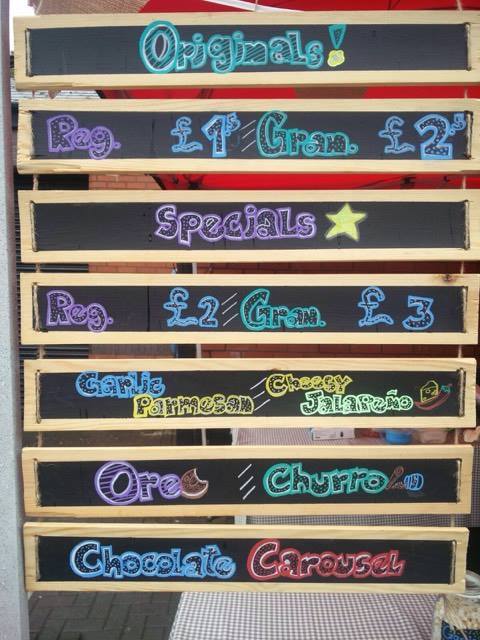 Originals!
Reg. £1 /// Gran. £2
Specials
Reg. £2 /// Gran. £3
Garlic Parmesan // Cheesy Jalapeño
Oreo /// Churro
Chocolate Carousel